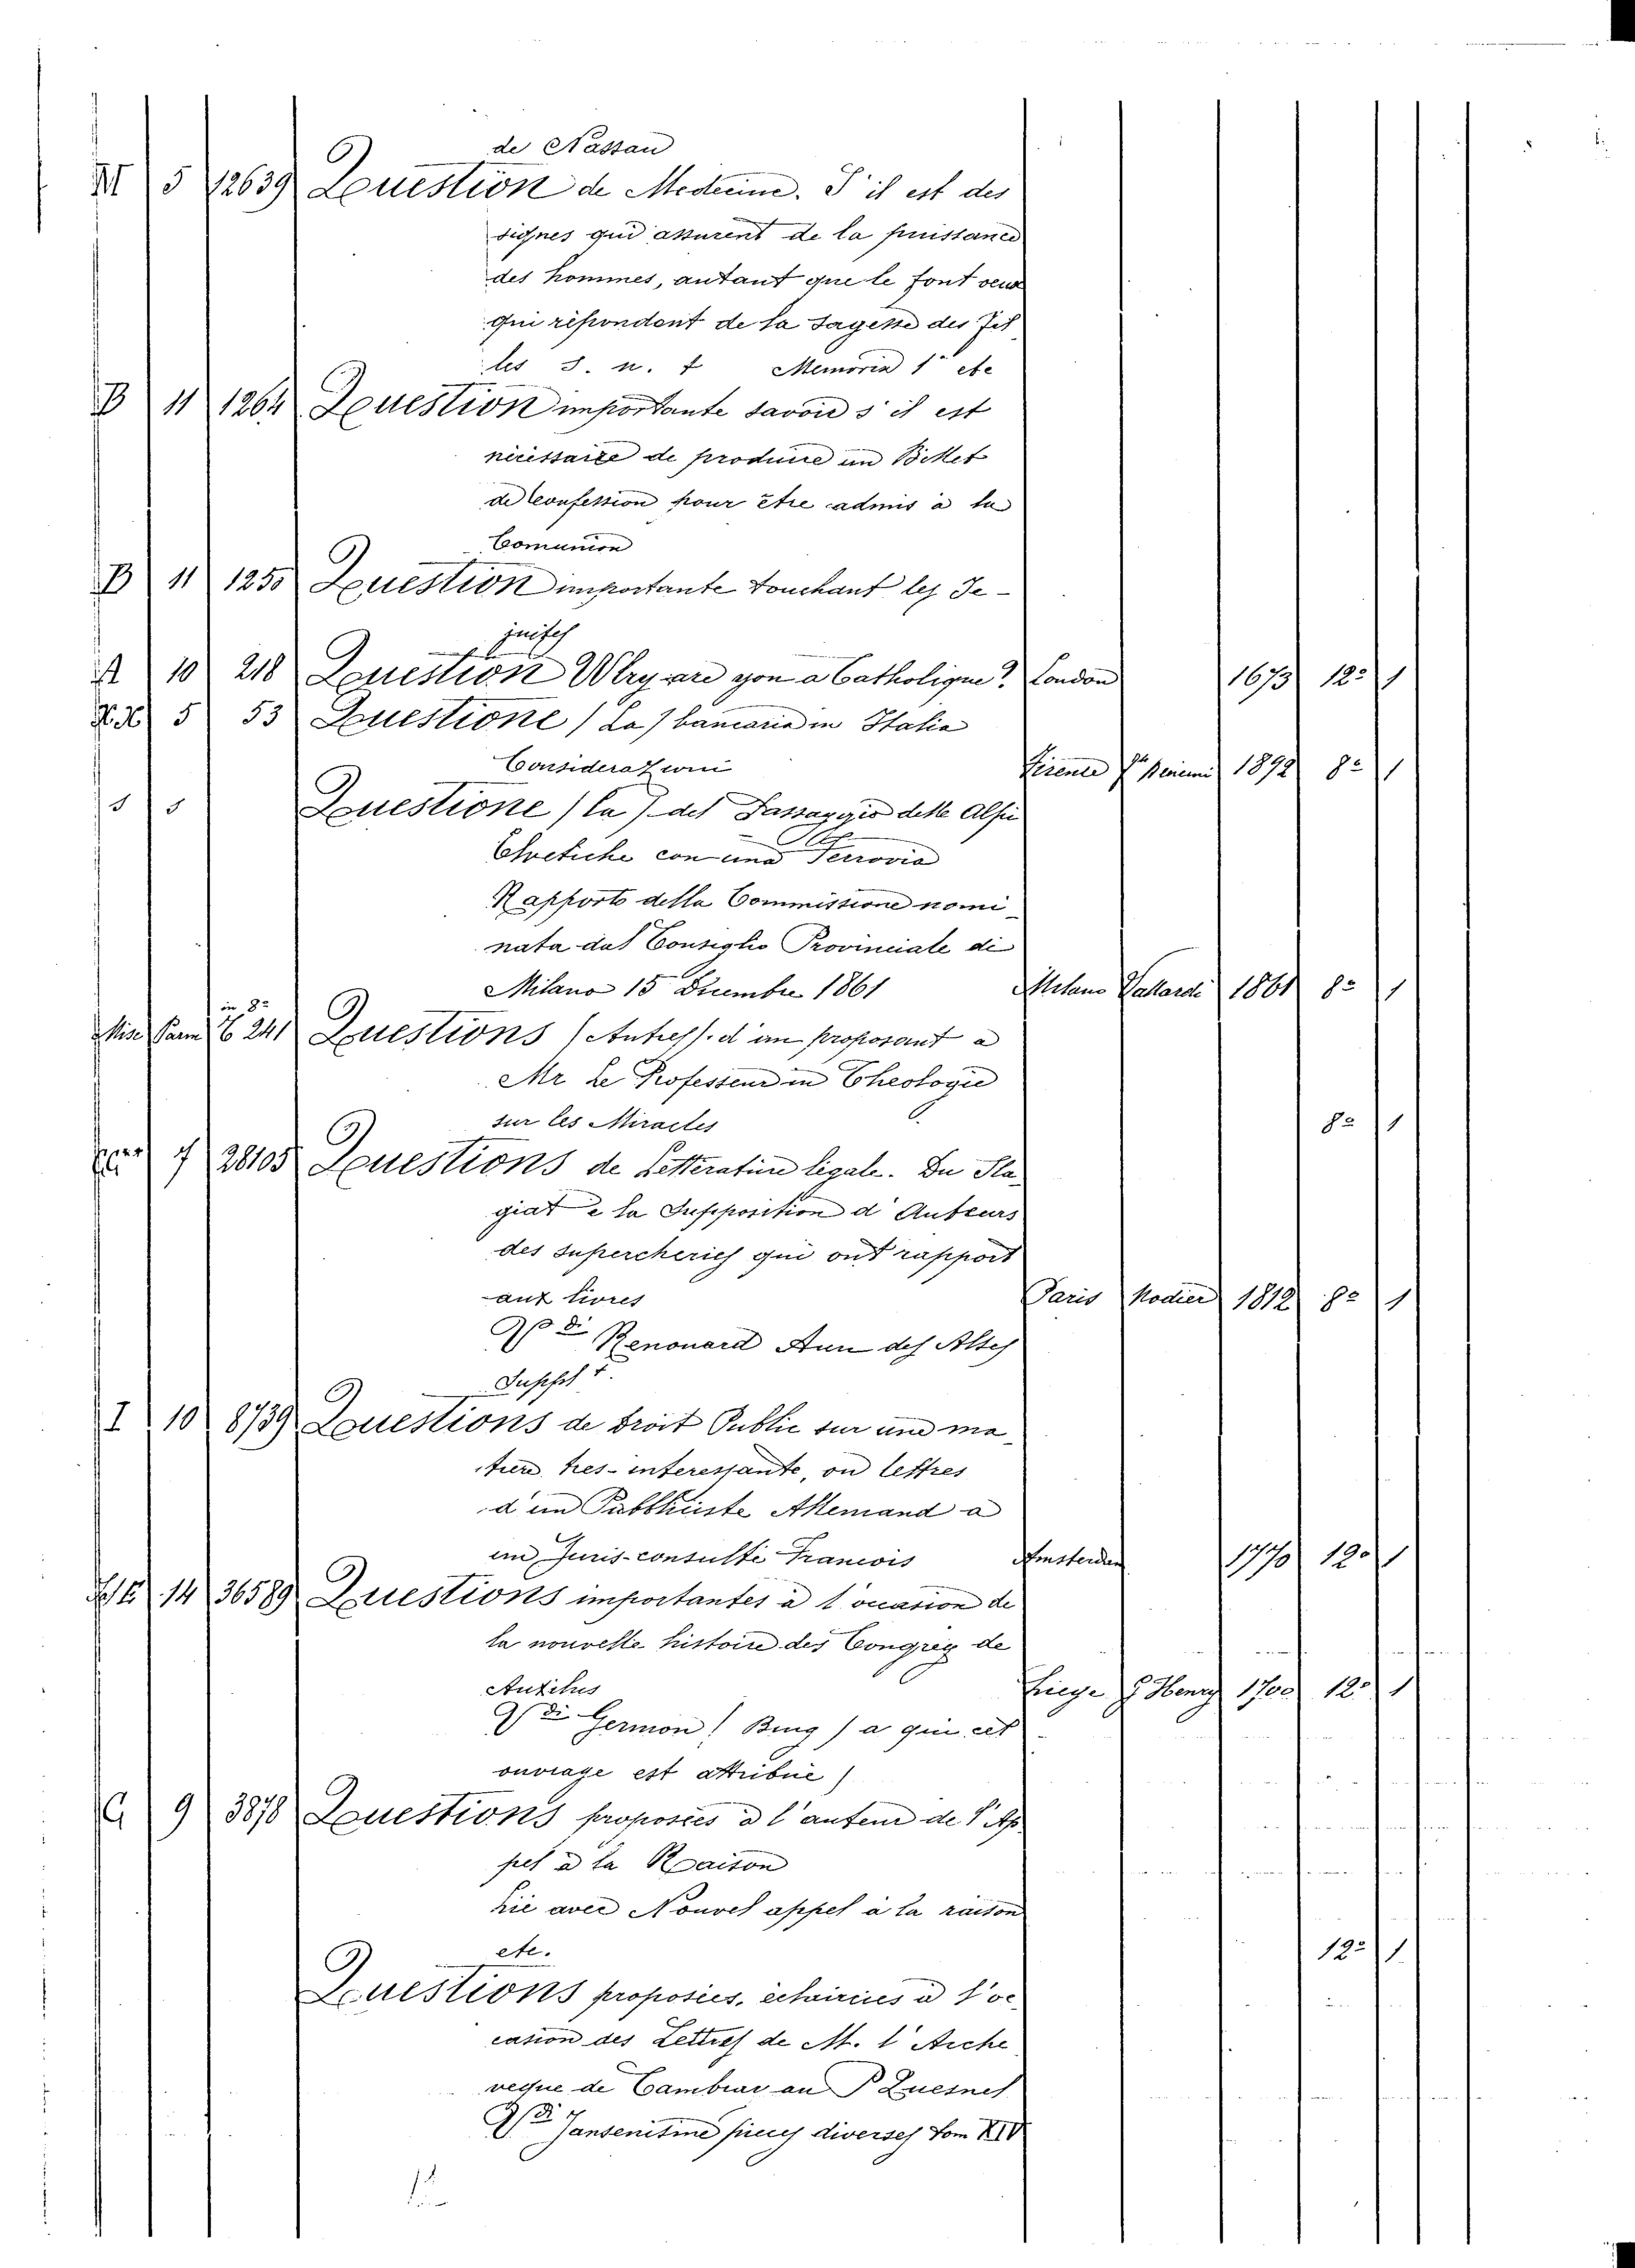 de Nassau
M 5 12639 Question de Medecine. S'il est des
signes qui assurent de la puissance
des hommes, autant que le font ceux
qui répondent de la Sagesse des Fil
les S. n. t Memoria 1° etc
B 11 1264 Question importante savoir s'il est
nécessaire de produire un Billet
de Confession pour être admis à la
Comunion
B 11 1250 Question importante touchant les Je-
juifes
A 10 218 Question Wry are yon a Catholique? London 1673 12° 1
5 53 Questione (La) bancaria in Italia
Considerazioni Firenze 1892 8° 1
5 5 Questione (la) del Passaggio delle Alpi
Elvetiche con una Ferrovia
Rapporto della Commissione nomi-
nata dal Consiglio Provinciale di
Milano 15 Dicembre 1861 Milano Vallardi 1861 8° 1
in 8°
Misc 241 Questions (Autres). d'un proposant a
Mr Le Professeur in Theologie
sur les Miracles 8° 1
7 28105 Questions de Letterature légale. Du Pla
giat e la Supposition d'Auteurs
des supercheries qui ont rapport
aux livres Paris Nodier 1812 8° 1
Renouard Ann des Altes
Supplt
I 10 8739 Questions de Droit Public sur une ma-
tiere tres-interessante, ou lettres
d'un Pubbliciste Allemand a
un Juris-consulte Francois Amsterdam 1770 12° 1
14 36589 Questions importantes à l'occasion de
la nouvelle histoire des Congreg de
Auxilus Liege J Henry 1700 12° 1
di Germon (Bing) a qui cet
ouvrage est attribué)
G 9 3878 Questions proposées à l'auteur de l'Ap
pel à la Raison
Lié avec Nouvel appel à la raison
etc. 12° 1
Questions proposées, éclaircies à l'oc
casion des Lettres de M. l'Arche
veque de Cambrai au P Quesnel
di Jansenisme pieces diverses Tom XIV